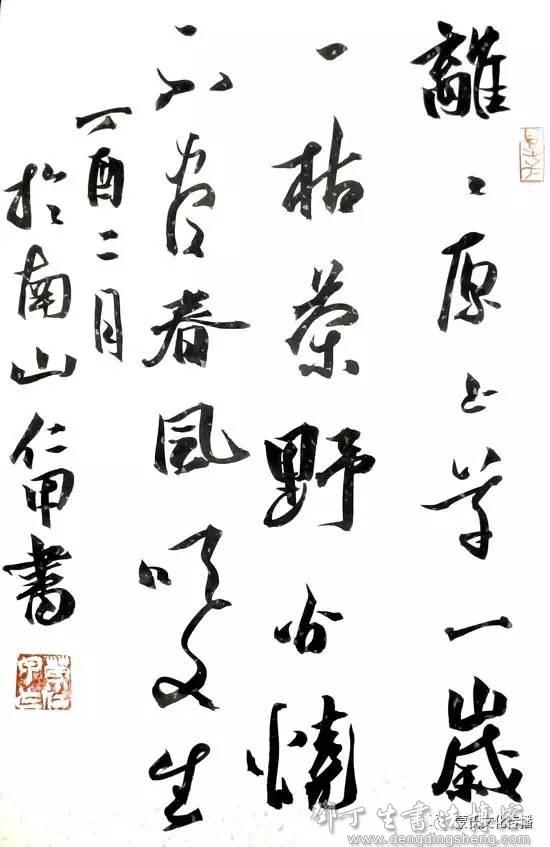 離〻原上草一歲
一枯榮野火燒
不盡春風吹又生
丁酉二月
於南山仁甲書
鄧丁生書法博客
www.dengdingsheng.com
文化传播